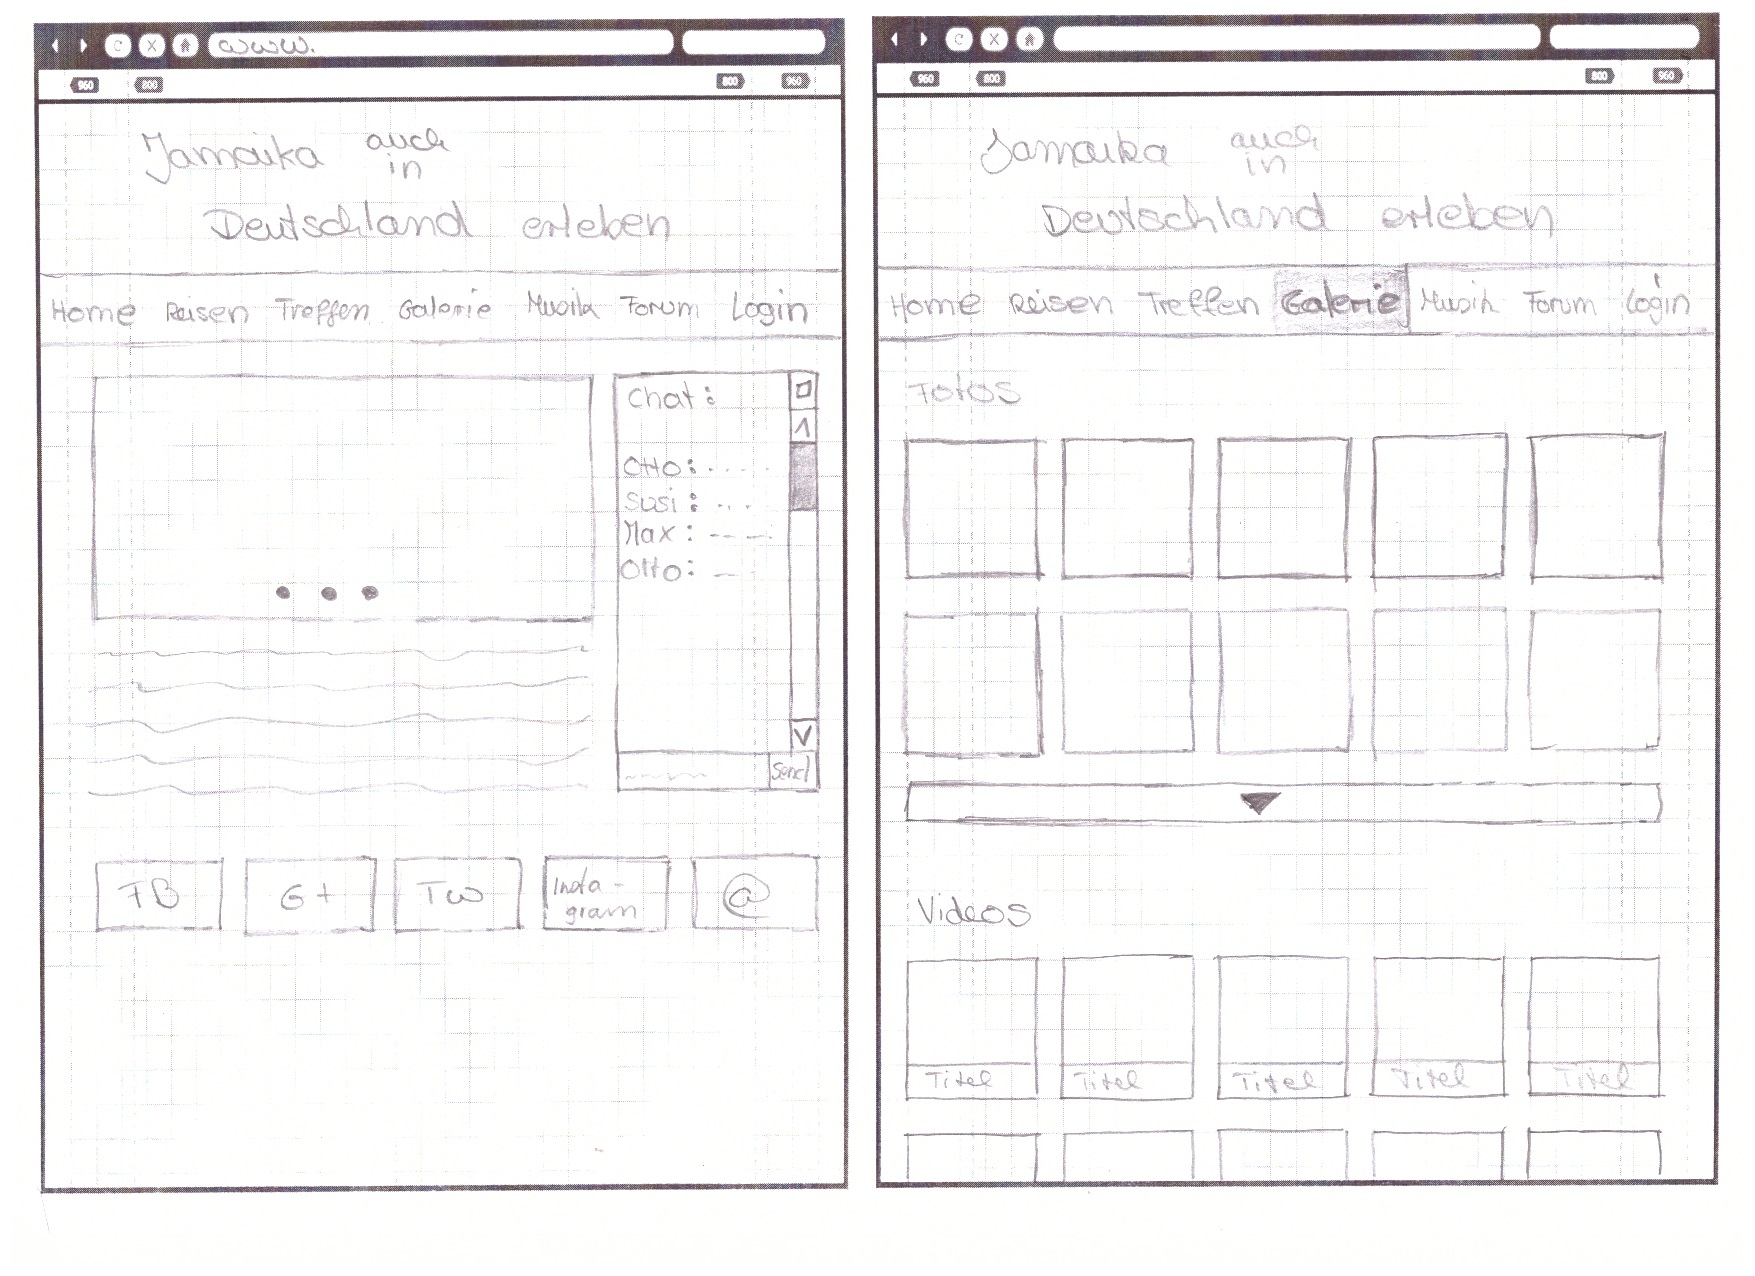 www.
960 800 800 960
Jamaika auch
in
Deutschland erleben
Home Reisen Treffen Galerie Musik Forum Login
Chat:
Otto:
Susi:
Max:
Otto:
Send
FB G+ Tw Insta-
gram @
960 800 800 960
Jamaika auch
in
Deutschland erleben
Home Reisen Treffen Galerie Musik Forum Login
Fotos
Videos
Titel Titel Titel Titel Titel